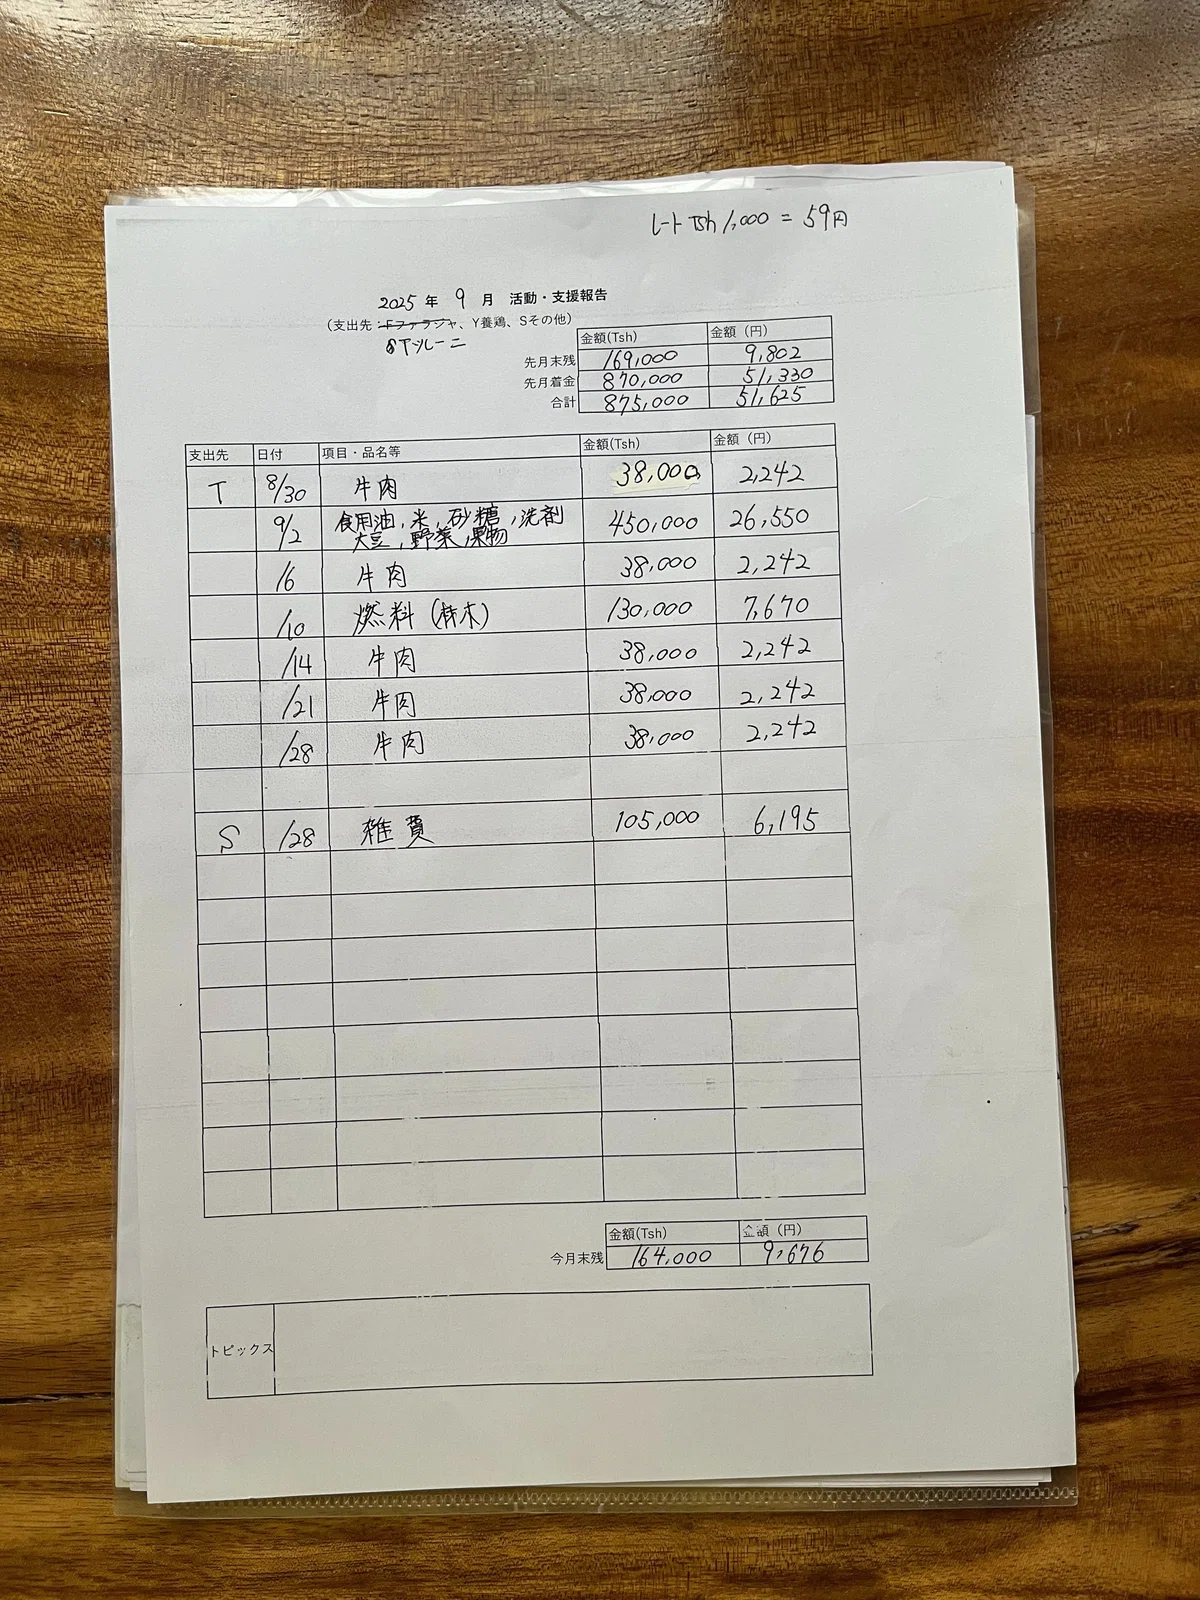 レート Tsh 1,000 = 59円
2025 年 9 月 活動・支援報告
(支出先:Fファラジャ、Y養鶏、Sその他)
Tツレーニ
金額(Tsh) 金額(円)
先月末残 169,000 9,802
先月着金 870,000 51,330
合計 875,000 51,625
支出先 日付 項目・品名等 金額(Tsh) 金額(円)
T 8/30 牛肉 38,000 2,242
9/2 食用油,米,砂糖,洗剤 450,000 26,550
大豆,野菜,果物
/6 牛肉 38,000 2,242
/10 燃料(柿木) 130,000 7,670
/14 牛肉 38,000 2,242
/21 牛肉 38,000 2,242
/28 牛肉 38,000 2,242
S /28 雑費 105,000 6,195
金額(Tsh) 金額(円)
今月末残 164,000 9,676
トピックス